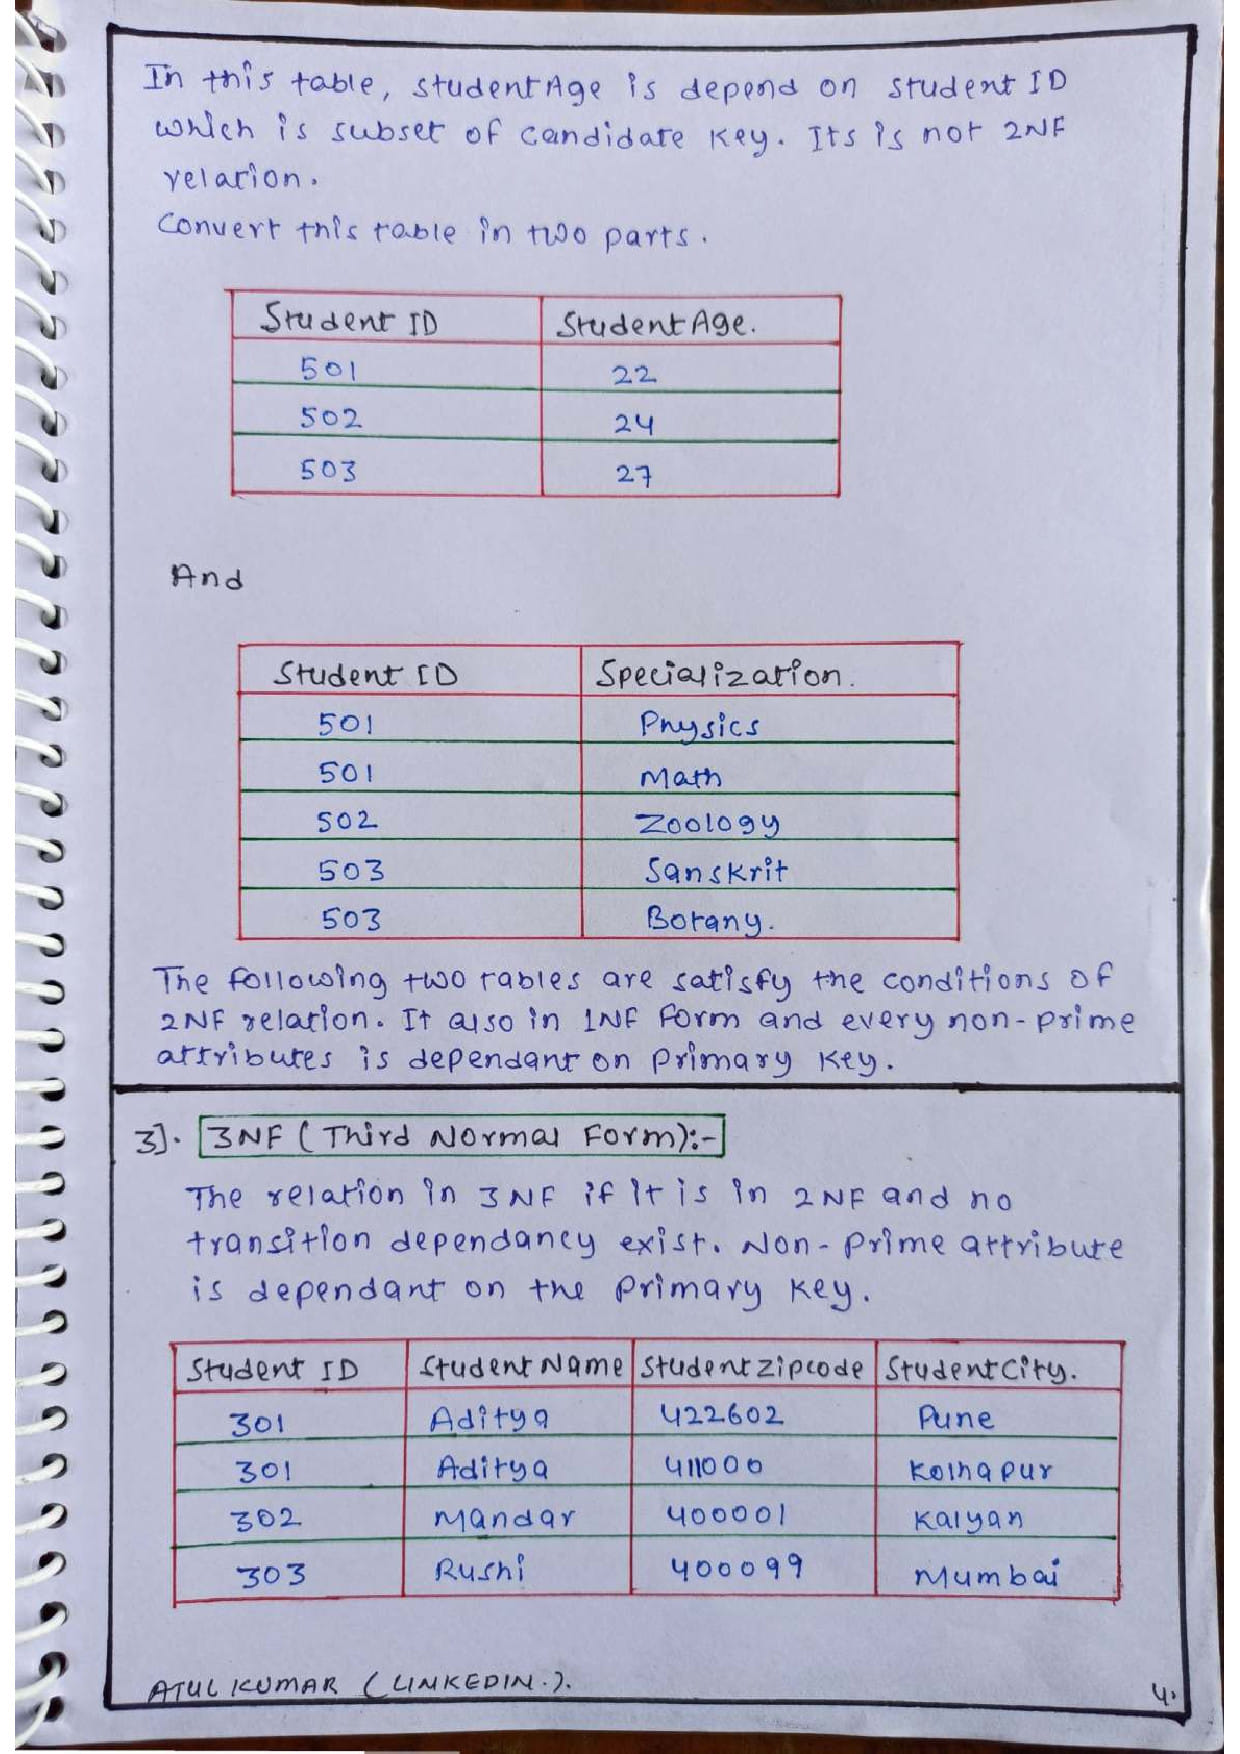 In this table, studentAge is depend on student ID
which is subset of candidate key. Its is not 2NF
relation.
Convert this table in two parts.
Student ID StudentAge.
501 22
502 24
503 27
And
Student ID Specialization.
501 Physics
501 Math
502 Zoology
503 Sanskrit
503 Botany.
The following two tables are satisfy the conditions of
2NF relation. It also in 1NF Form and every non-prime
attributes is dependant on primary key.
3]. 3NF (Third Normal Form):-
The relation in 3NF if it is in 2NF and no
transition dependancy exist. Non-prime attribute
is dependant on the primary key.
Student ID Student Name Studentzipcode StudentCity.
301 Aditya 422602 Pune
301 Aditya 411000 Kolhapur
302 Mandar 400001 Kalyan
303 Rushi 400099 Mumbai
ATUL KUMAR (LINKEDIN.).
4.